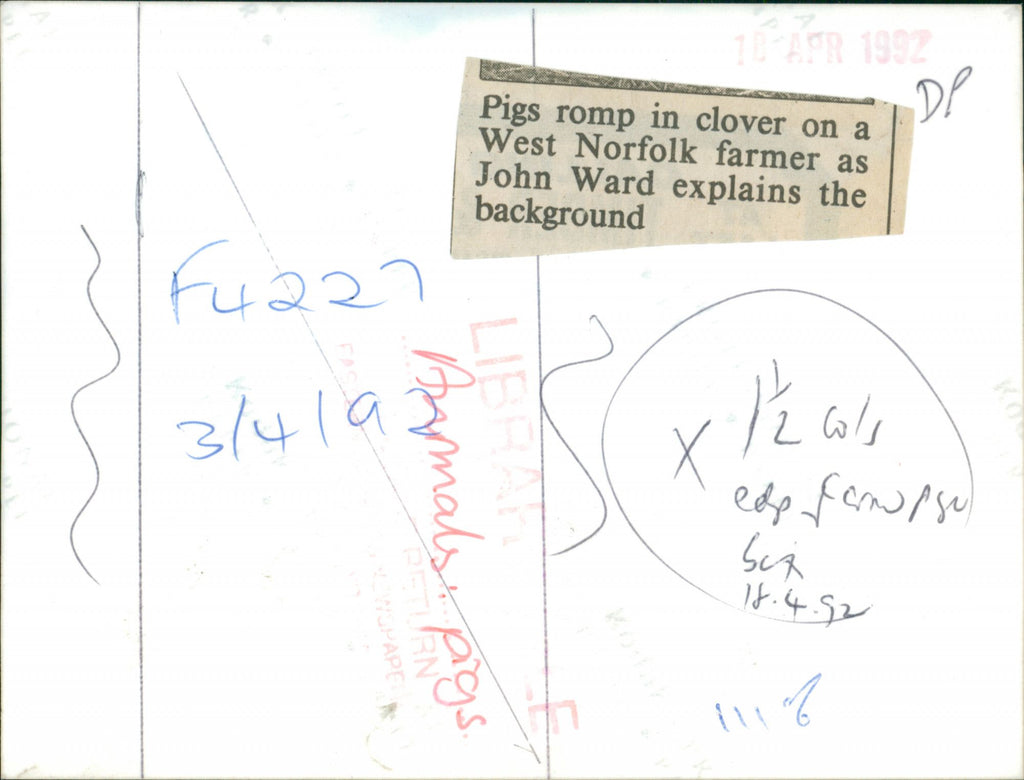 18 APR 1992
DP
Pigs romp in clover on a
West Norfolk farmer as
John Ward explains the
background
F4227
3/4/92
LIBRAR
Animals: pigs.
RETURN
X 1 1/2 cols
edp farm
18.4.92
111%